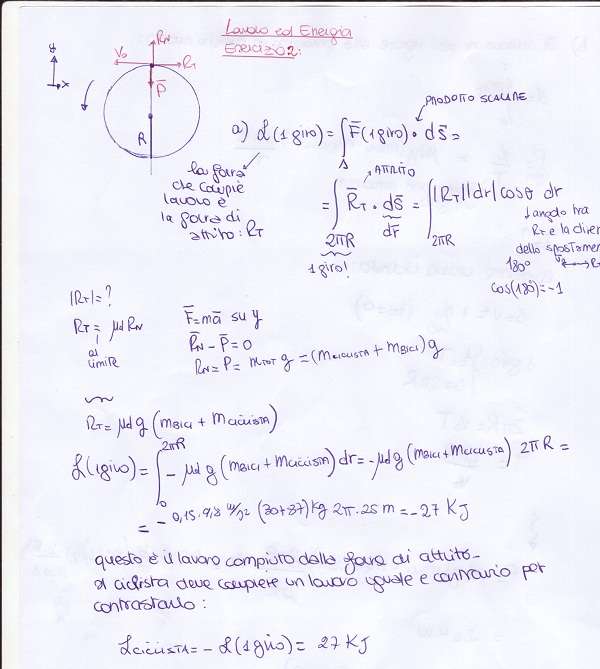 Lavoro ed Energia
Esercizio 2:
y
x
V₀
R_N
R_T
P̄
R
a) L(1 giro) = ∫_Δ F̄(1 giro) · ds̄ =
PRODOTTO SCALARE
la forza
che compie
lavoro è
la forza di
attrito: R_T
ATTRITO
= ∫_2πR R̄_T · ds̄ = ∫_2πR |R_T||dr| cosθ dr
dr̄
1 giro!
angolo tra
R_T e la
dello
180°
R_T
cos(180°) = -1
|R_T| = ?
R_T = μd R_N
al
limite
F̄ = mā su y
R̄_N - P̄ = 0
R_N = P = m_TOT g = (m_CICLISTA + m_BICI) g
R_T = μd g (m_BICI + m_CICLISTA)
L(1 giro) = ∫_0^2πR - μd g (m_BICI + m_CICLISTA) dr = -μd g (m_BICI + m_CICLISTA) 2πR =
= - 0,15 · 9,8 m/s² (30+87) kg 2π · 25 m = -27 KJ
questo è il lavoro compiuto dalla forza di attrito -
Il ciclista deve compiere un lavoro uguale e contrario per
contrastarlo:
L_CICLISTA = - L(1 giro) = 27 KJ